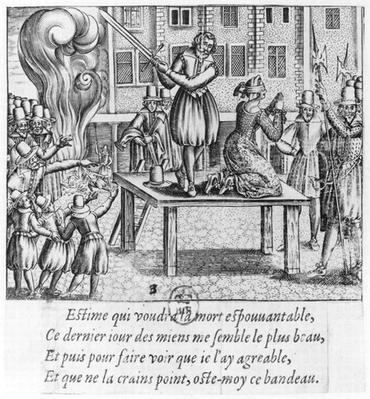 Estime qui voudra la mort espouuantable,
Ce dernier iour des miens me semble le plus beau,
Et puis pour faire voir que ie l'ay agreable,
Et que ne la crains point, oste-moy ce bandeau.